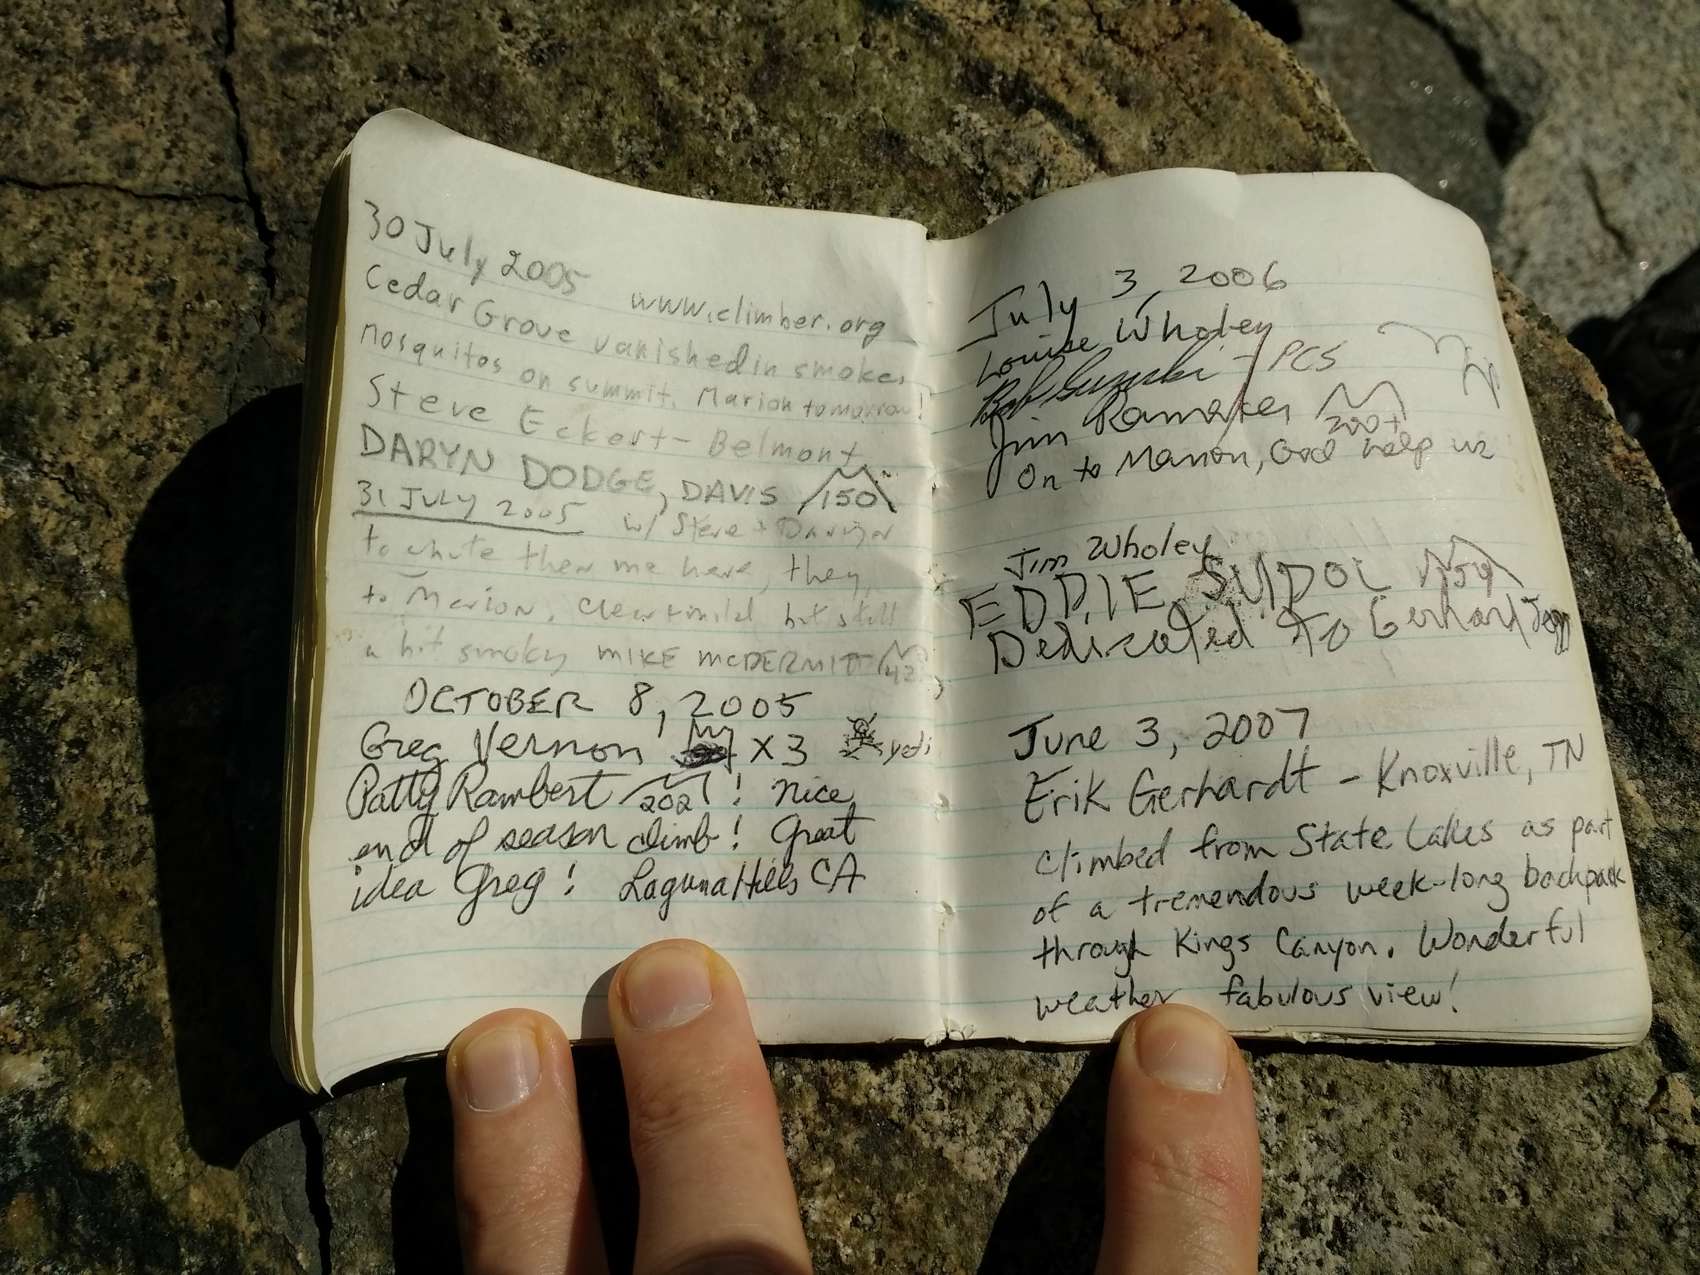 30 July 2005
www.climber.org
Cedar Grove vanished in smoke,
mosquitos on summit. Marion tomorrow!
Steve Eckert - Belmont
DARYN DODGE, DAVIS 150
31 JULY 2005 w/ Steve + Daryn
to chute then me here, they
to Marion. Clear + mild but still
a bit smoky MIKE McDERMITT 42
OCTOBER 8, 2005
Greg Vernon x3 yeti
Patty Rambert 202! nice
end of season climb! Great
idea Greg! Laguna Hills CA
July 3, 2006
Louise Wholey
Bob - PCS
Jim Ramaker 200+
On to Marion, God help us
Jim Wholey
EDDIE SUDOL
Dedicated To Gerhard
June 3, 2007
Erik Gerhardt - Knoxville, TN
climbed from State Lakes as part
of a tremendous week-long backpack
through Kings Canyon. Wonderful
weather fabulous view!